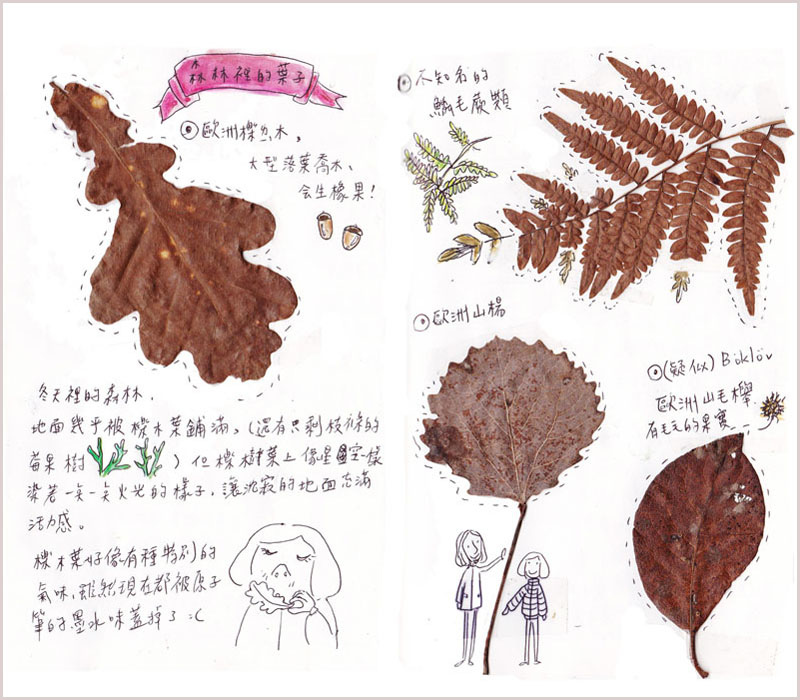 森林裡的葉子
歐洲櫟木,
大型落葉喬木、
会生橡果!
冬天裡的森林,
地面幾乎被櫟木葉鋪滿、(還有只剩枝條的
莓果樹 ) 但櫟樹葉上像星空一樣
染著一点一点火光的樣子,讓沈寂的地面充滿
活力感。
櫟木葉好像有種特別的
氣味,雖然現在都被原子
筆的墨水味蓋掉了 :C
不知名的
鱗毛蕨類
歐洲山楊
(疑似) Böklöv
歐洲山毛櫸
有毛毛的果實